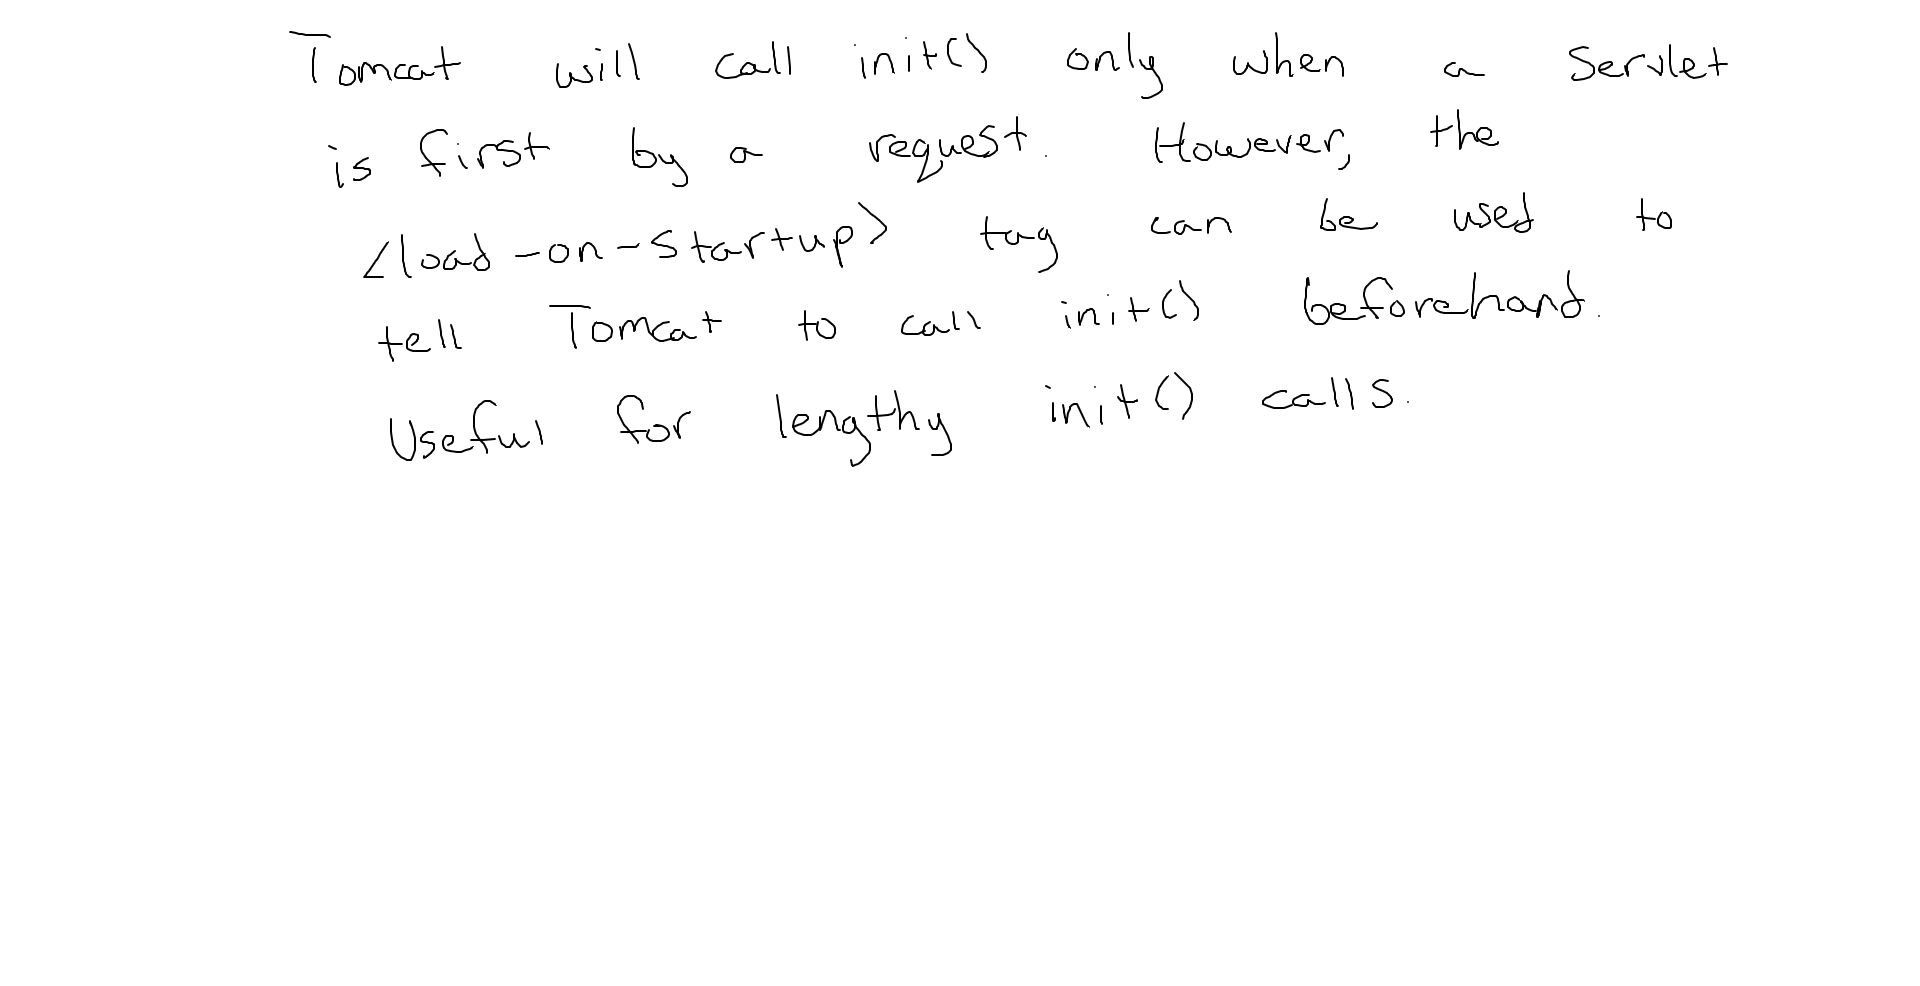 Tomcat will call init() only when a Servlet
is first by a request. However, the
<load-on-startup> tag can be used to
tell Tomcat to call init() beforehand.
Useful for lengthy init() calls.